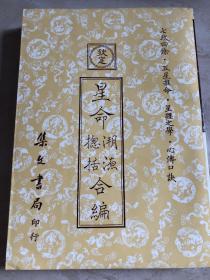 七政四餘·五星推命·星躔之學·心傳口訣
欽定
星命溯源
摠括合編
集文書局印行